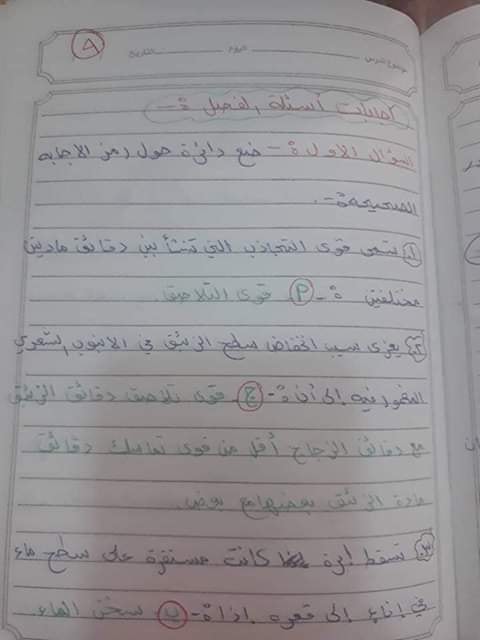 ٩
موضوع الدرس اليوم التاريخ
إجابات أسئلة الفصل :-
السؤال الاول :- ضع دائرة حول رمز الاجابه
الصحيحة :-
١. تسمى قوى التجاذب التي تنشأ بين دقائق مادتين
مختلفتين :- أ قوى التلاصق.
٢. يعزى سبب انخفاض سطح الزئبق في الانبوب الشعري
المغمور فيه إلى أن :- ج قوى تلاصق دقائق الزئبق
مع دقائق الزجاج أقل من قوى تماسك دقائق
مادة الزئبق بعضها مع بعض.
٣. تسقط إبرة كانت مستقرة على سطح ماء
في إناء إلى قعره إذا :- ب سخن الماء.